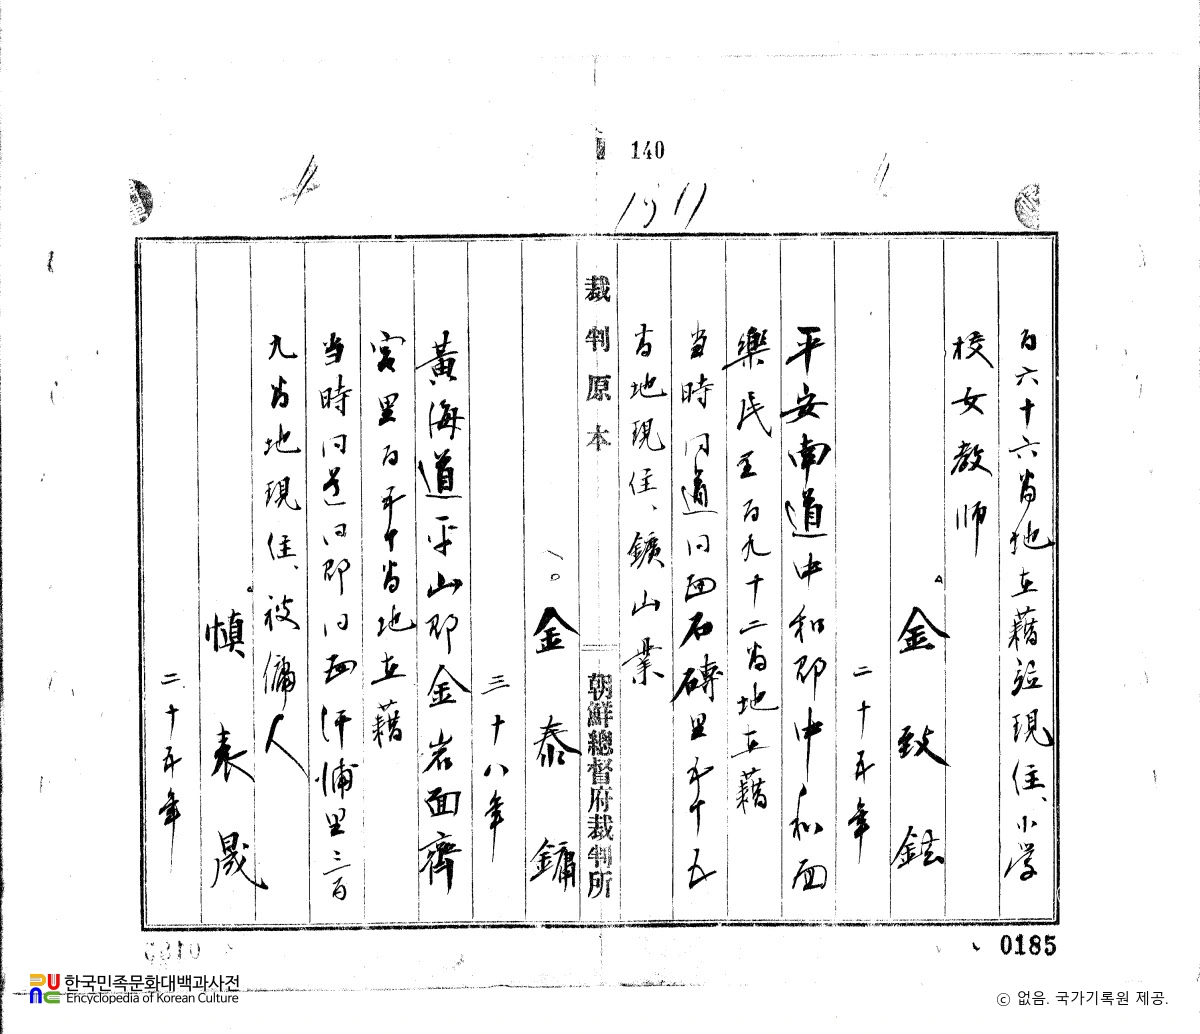 140
百六十六番地在籍並現住、小学
校女教师
金致鉉
二十五年
平安南道中和郡中和面
樂民里百九十二番地在籍
当時同道同面石磚里五十五
番地現住、鑛山業
裁判原本
朝鮮總督府裁判所
金泰鏞
三十八年
黃海道平山郡金岩面齊
宮里百五十番地在籍
当時同道同郡同面汗浦里三百
九番地現住、被傭人
愼表晟
二十五年
0185
한국민족문화대백과사전
Encyclopedia of Korean Culture
ⓒ 없음. 국가기록원 제공.